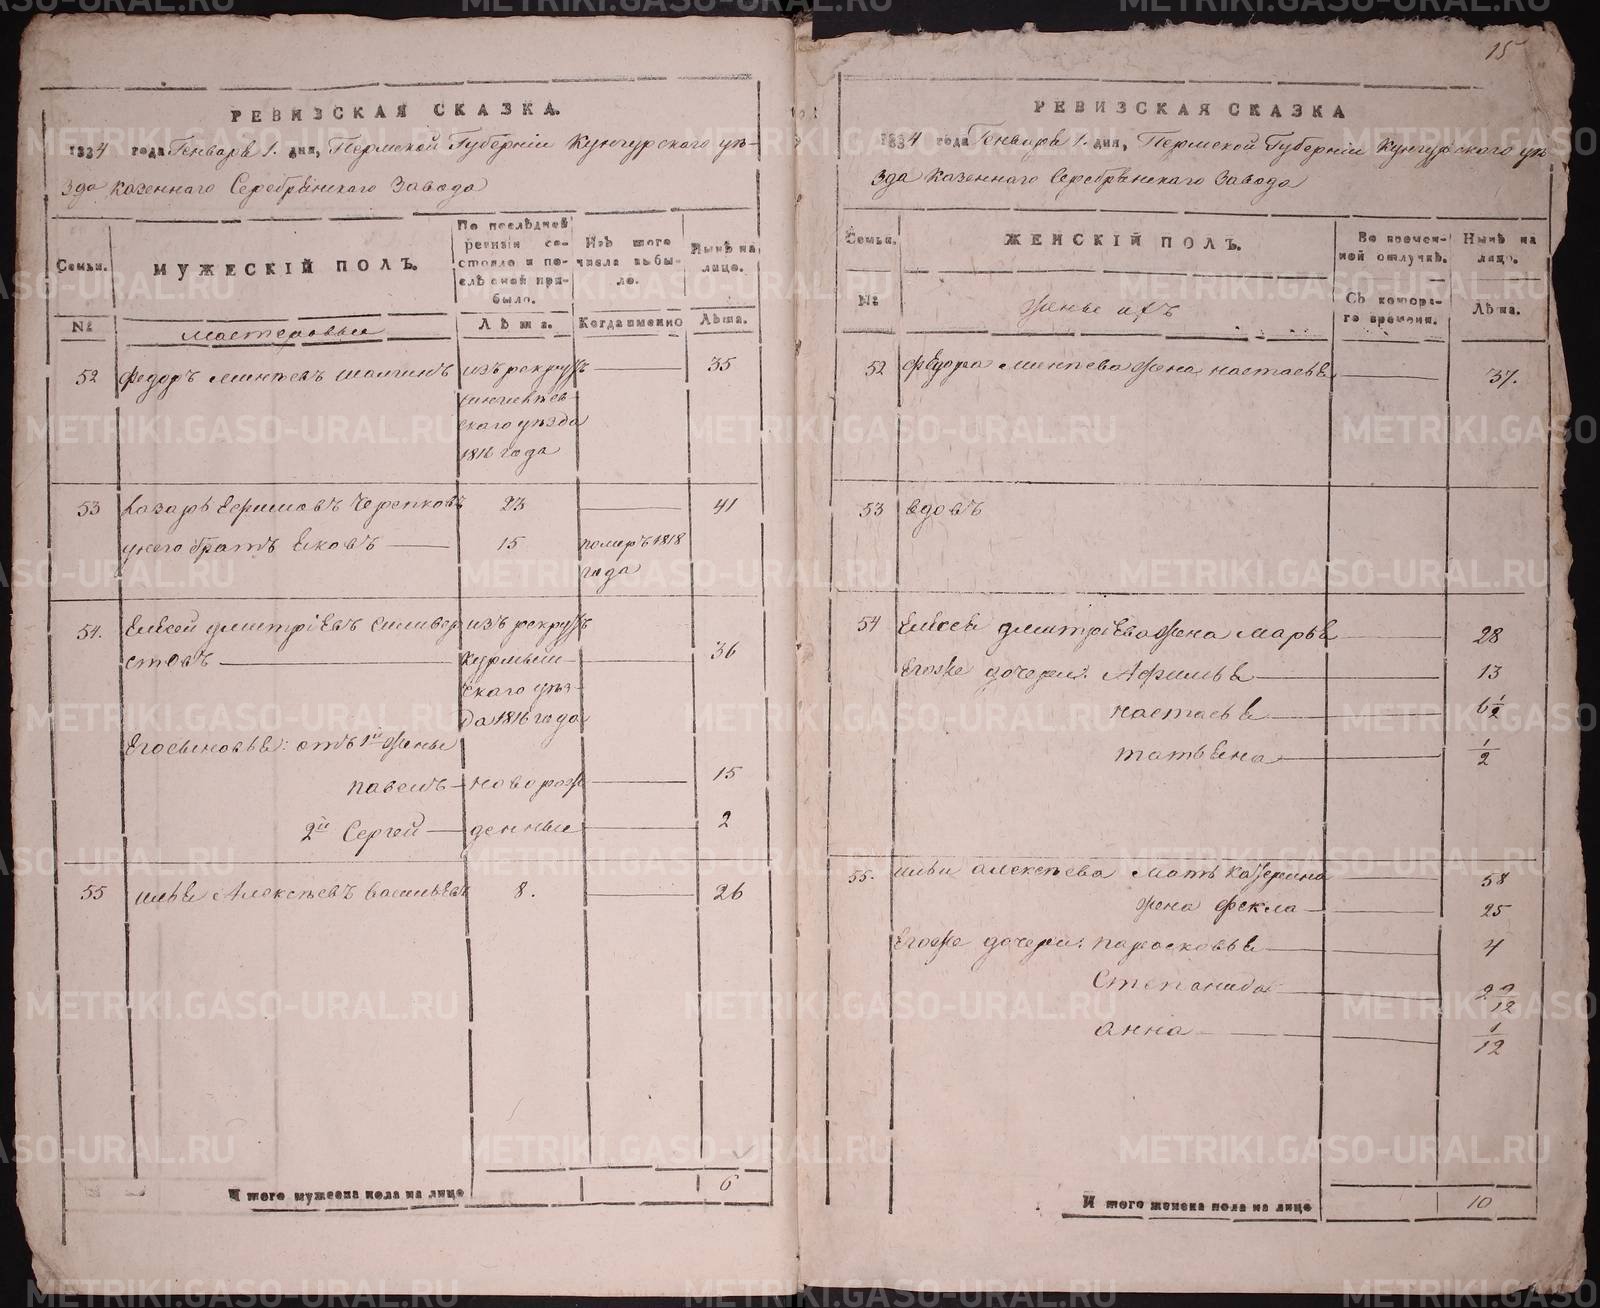 РЕВИЗСКАЯ СКАЗКА.
1834 года Генваря 1. дня, Пермской Губерніи Кунгурского уѣ-
зда казенного Серебрянского Завода
Семьи.
МУЖЕСКІЙ ПОЛЪ.
По послѣдней ревизіи со-стояло и по-слѣ оной при-было.
Изъ того числа выбы-ло.
Нынѣ на лицо.
№
мастеровые
Лѣта.
Когда именно
Лѣта.
52 Федоръ Минѣевъ изъ рекрутъ 35
ского уѣзда
1816 года
53 Лазарь Ефимовъ Черепковъ 23 41
у него братъ Яковъ 15 померъ 1818
года
54. Елисей Дмитріевъ Сильвер изъ рекрутъ
стовъ 36
ского уѣз-
да 1816 года
Его сыновья: отъ 1й жены
Павелъ новорож 15
2й Сергей денные 2
55 Илья Алексѣевъ Васильевъ 8. 26
Итого мужеска пола на лицо 6
15
РЕВИЗСКАЯ СКАЗКА
1834 года Генваря 1. дня, Пермской Губерніи Кунгурского уѣ
зда казенного Серебрянского Завода
Семьи.
ЖЕНСКІЙ ПОЛЪ.
Во времен-ной отлучкѣ.
Нынѣ на лицо.
№
жены ихъ
Съ котора-го времени.
Лѣта.
52 Федора Минѣева жена Настасья 37.
53 вдовъ
54 Елисея Дмитріева жена Марья 28
Его же дочери: Афимья 13
Настасья 6 1/2
Татьяна 1/2
55. Ильи Алексѣева мать Катерина 58
жена Фекла 25
Его же дочери: Парасковья 4
Степанида 2 2/12
Анна 1/12
Итого женска пола на лицо 10
METRIKI.GASO-URAL.RU